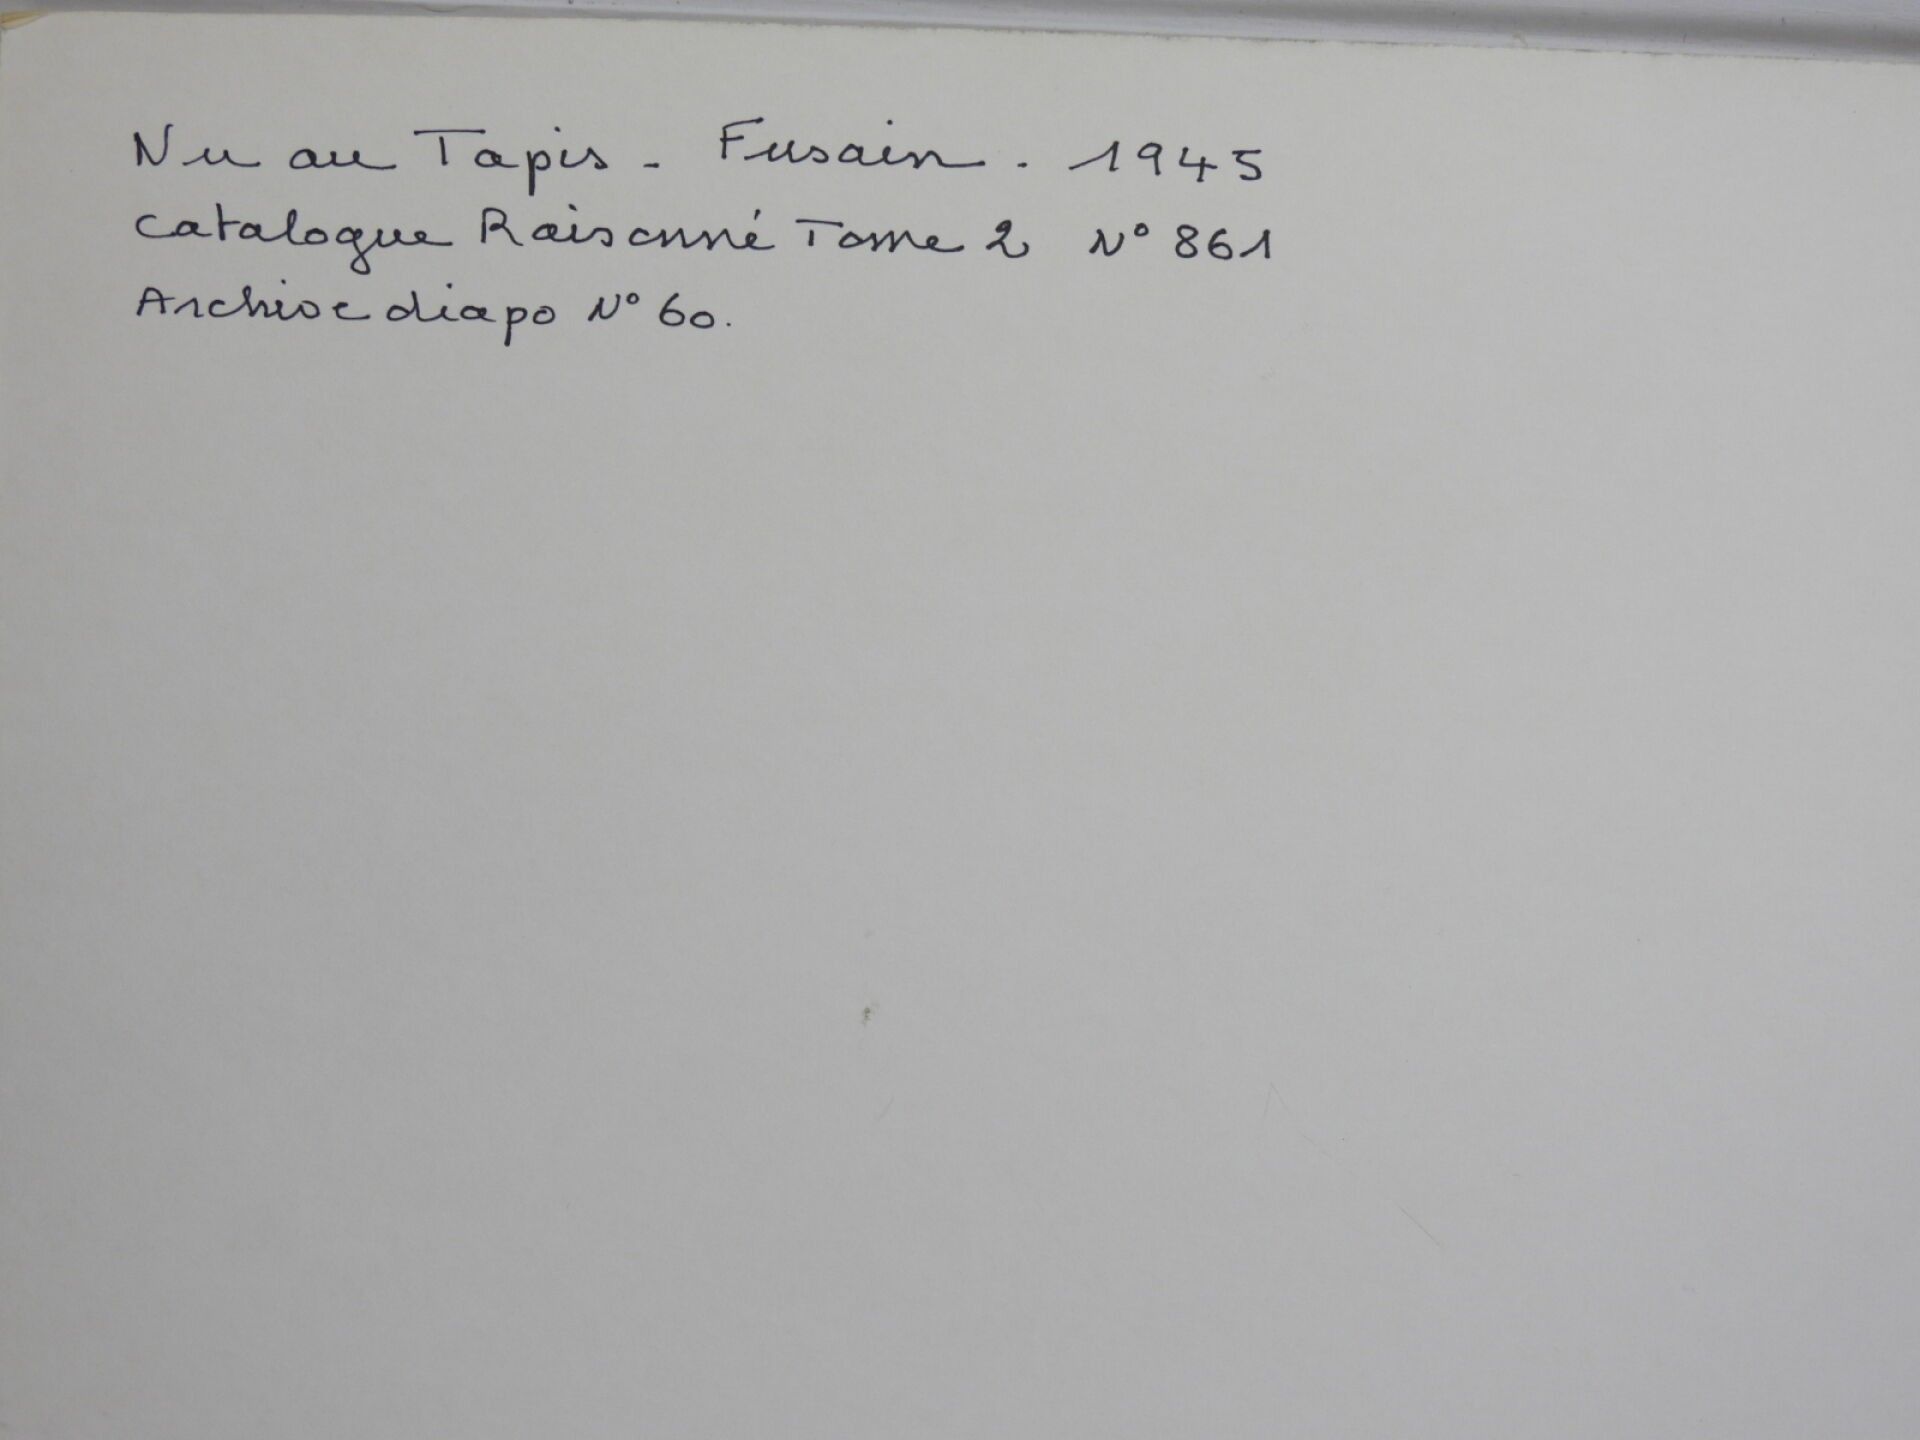 Nu au Tapis - Fusain. 1945
Catalogue Raisonné Tome 2 N° 861
Archive diapo N° 60.